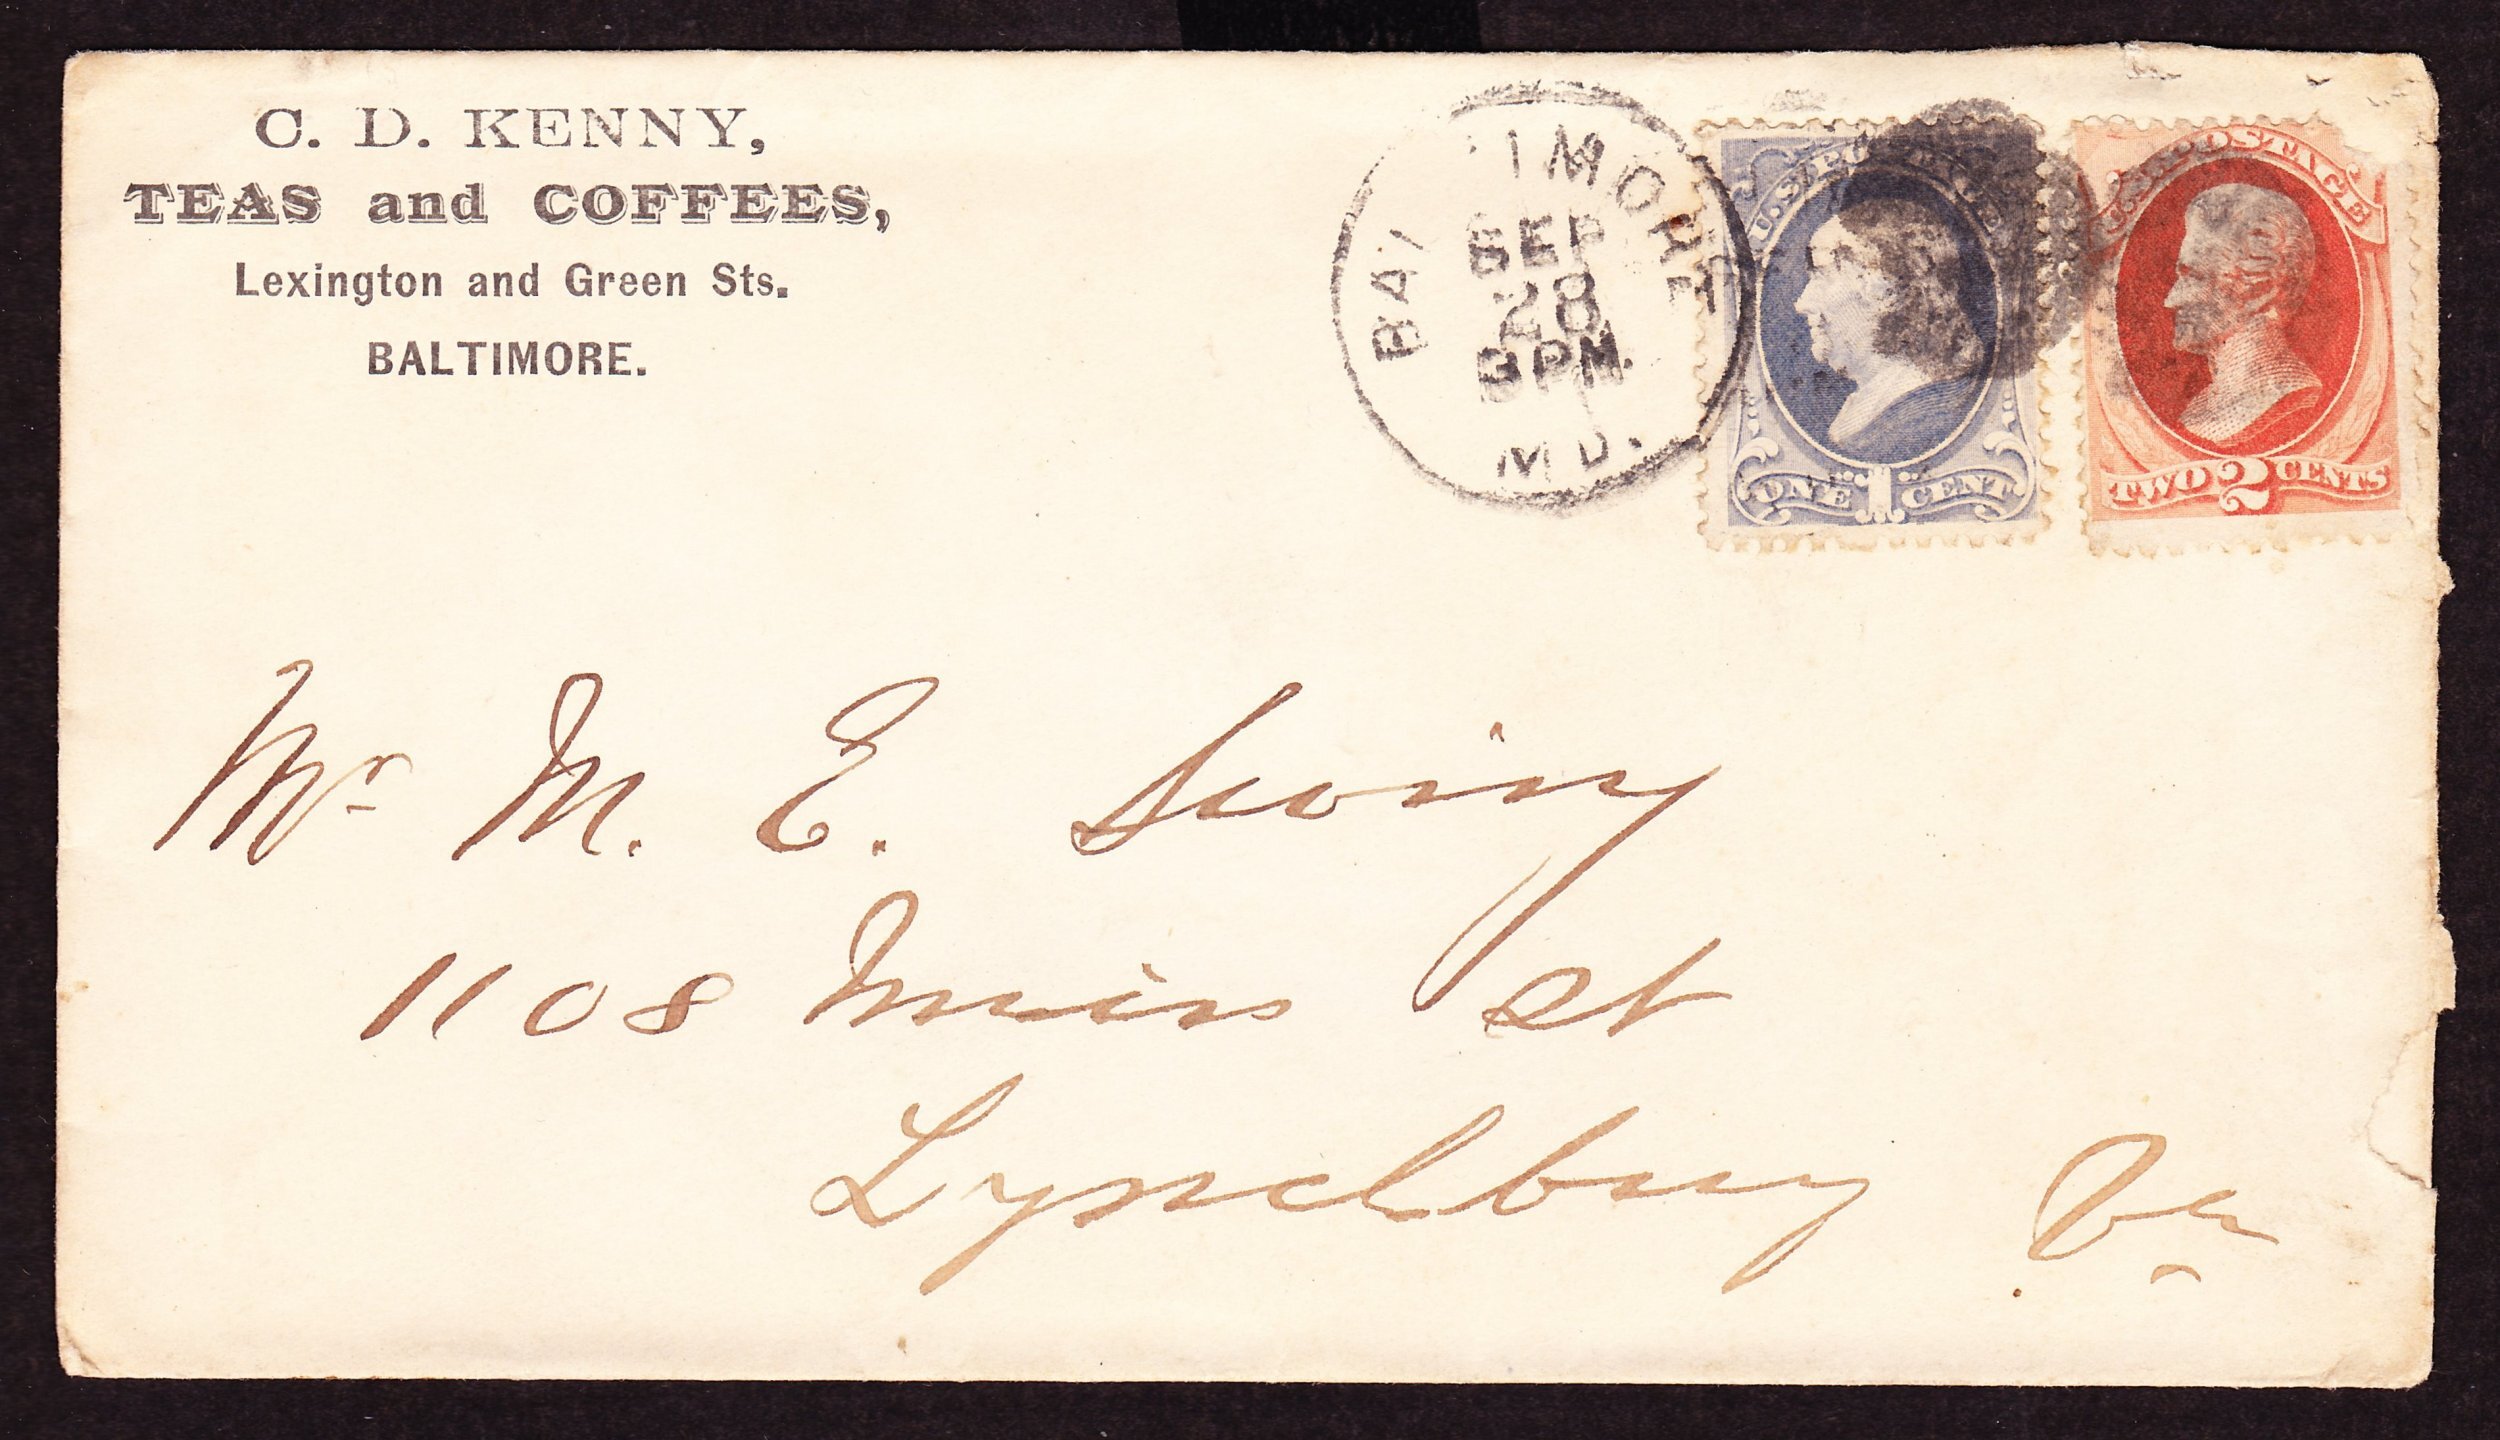 C. D. KENNY,
TEAS and COFFEES,
Lexington and Green Sts.
BALTIMORE.
BALTIMORE
SEP
28
PM.
MD.
U.S. POSTAGE
ONE 1 CENT
U.S. POSTAGE
TWO 2 CENTS
Mr M. E.
1108 Main St
Lynchburg Va